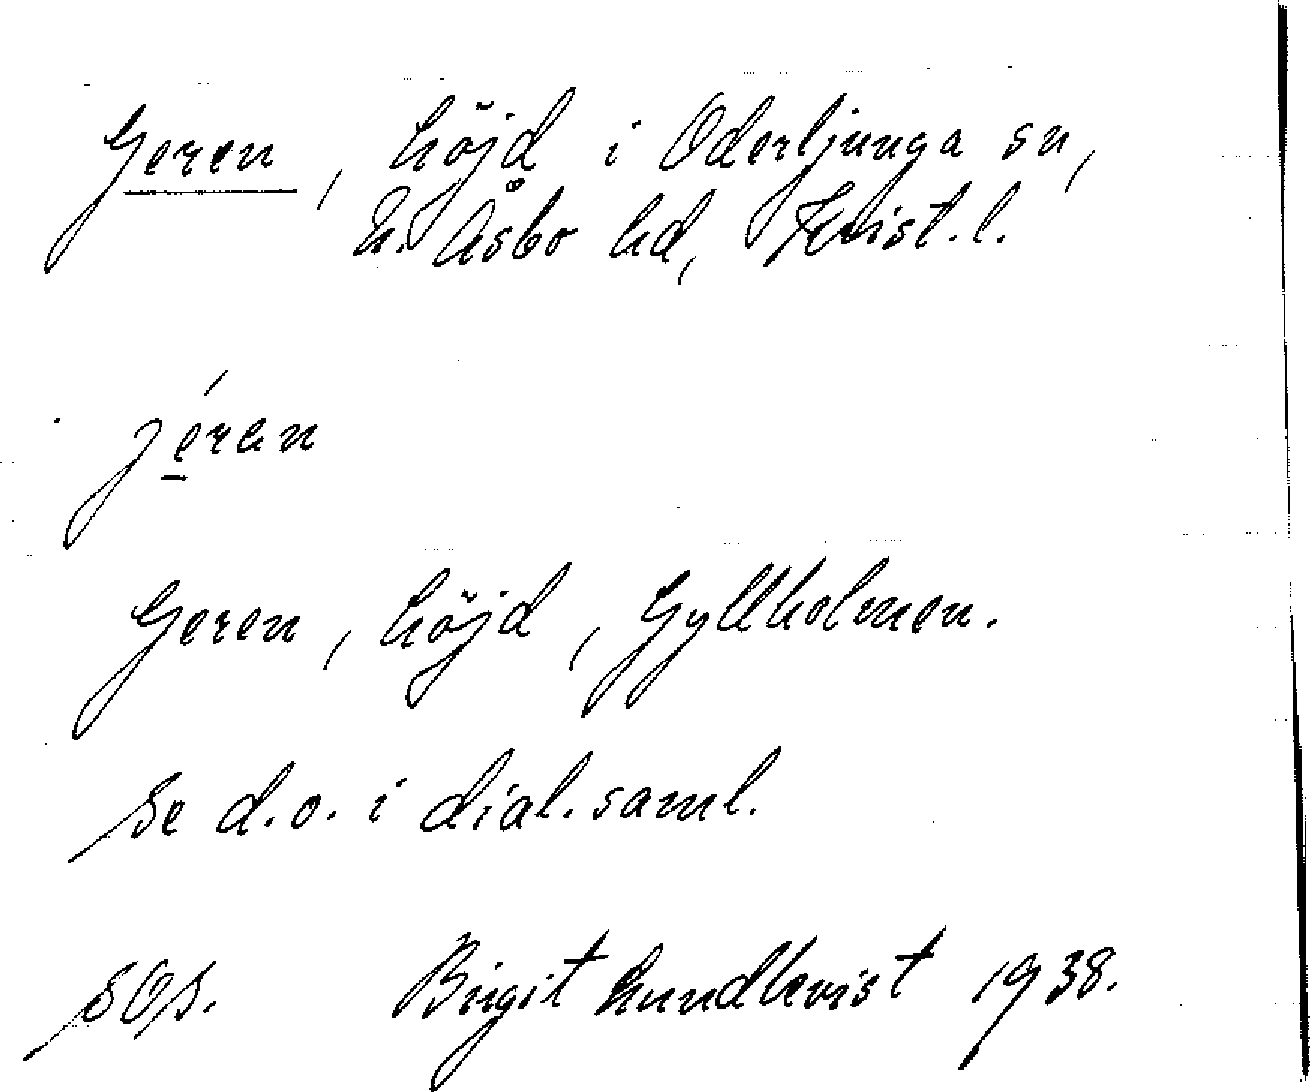 Geren, höjd i Oderljunga sn,
N. Åsbo hd, Krist. l.
jéran
Geren, höjd, Gyllholmen.
Se d.o. i dial. saml.
SOS. Birgit Lundkvist 1938.